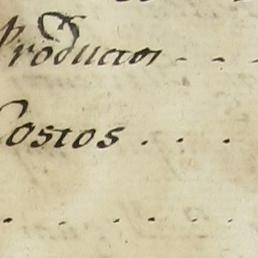 Productos - - -
Costos . . .
. . . . .